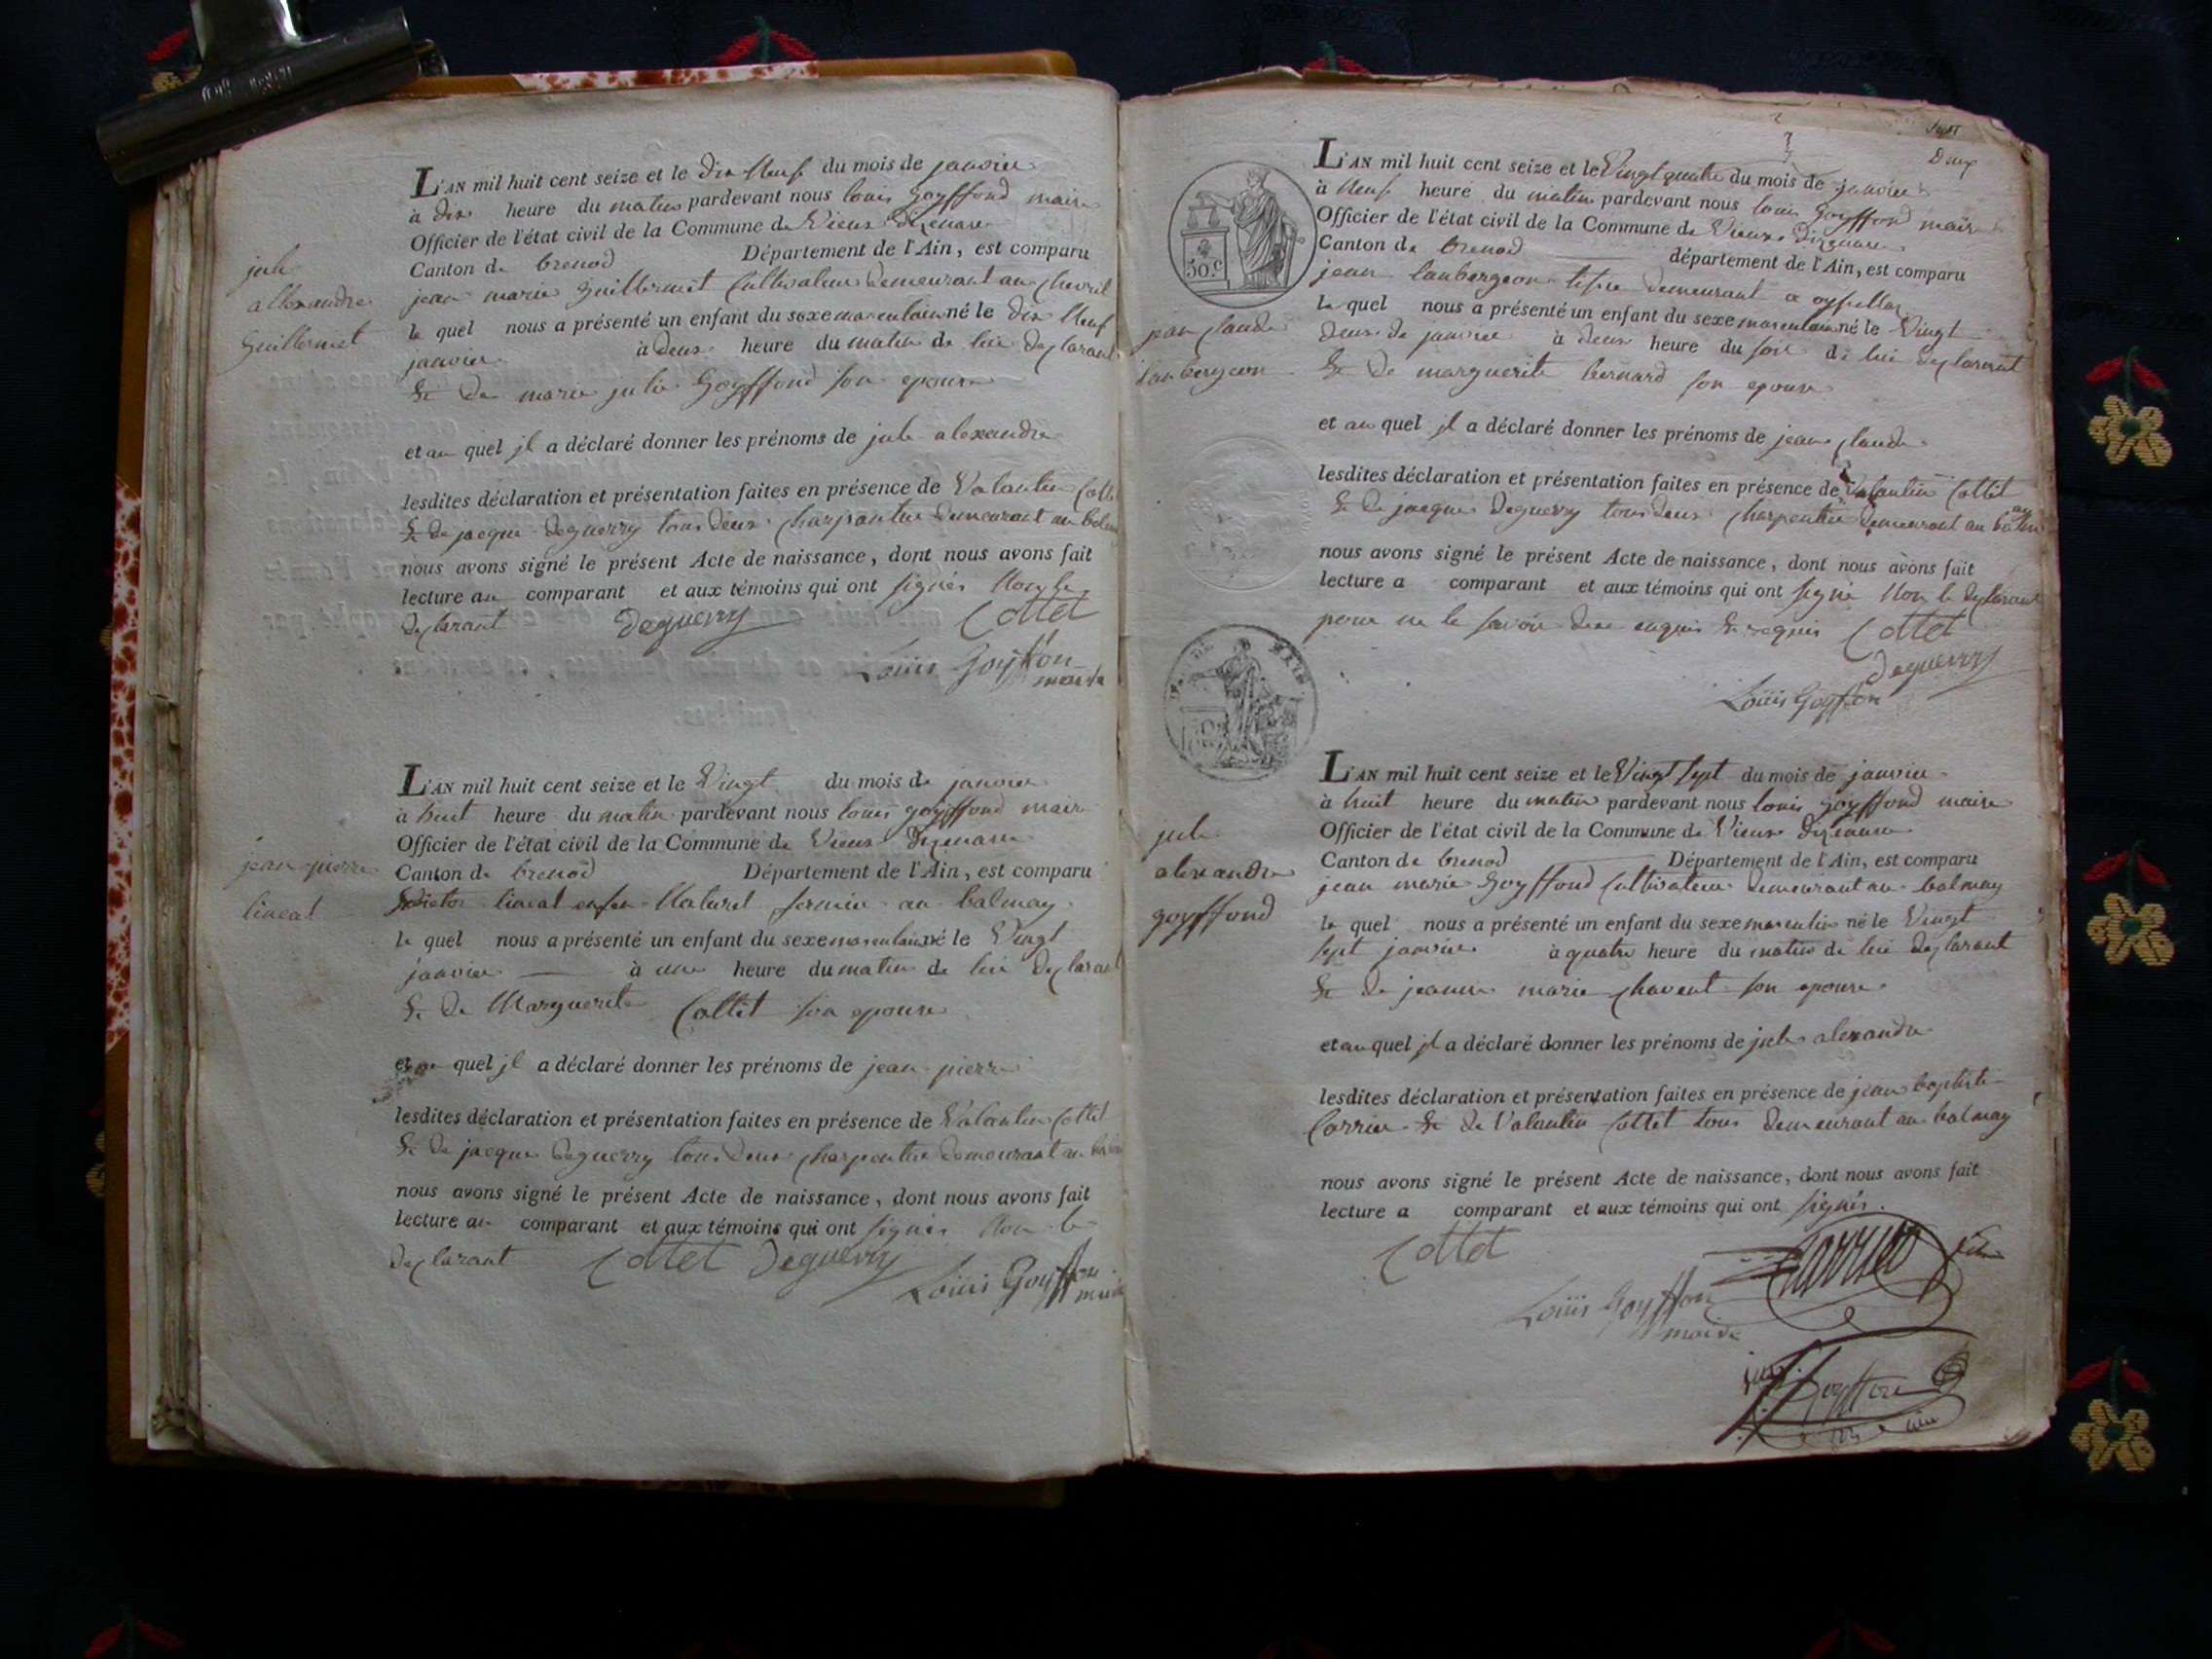 jule
allexandre
Guillermet
L'AN mil huit cent seize et le dix Neuf du mois de janvier
à dix heure du matin pardevant nous louis goyffond maire
Officier de l'état civil de la Commune de Vieux Dizenave
Canton de brenod Département de l'Ain, est comparu
jean marie guillermet Cultivateur demeurant au Chevril
le quel nous a présenté un enfant du sexe masculain né le dix Neuf
janvier à deux heure du matin de lui declarant
& de marie julie Goyffond son epouse
et au quel jl a déclaré donner les prénoms de jule alexandre
lesdites déclaration et présentation faites en présence de Valantin Cottet
& de jacque deguerry tous deux charpantier demeurant au balmay
nous avons signé le présent Acte de naissance, dont nous avons fait
lecture au comparant et aux témoins qui ont signés Non le
declarant deguerry Cottet
Louis Goyffon
maire
jean pierre
lineal
L'AN mil huit cent seize et le Vingt du mois de janvier
à huit heure du matin pardevant nous louis goyffond maire
Officier de l'état civil de la Commune de Vieux Dizenave
Canton de brenod Département de l'Ain, est comparu
Victor lineal enfen Naturel fermier au balmay
le quel nous a présenté un enfant du sexe masculain né le Vingt
janvier à une heure du matin de lui declarant
& de Marguerite Cottet son epouse
et au quel jl a déclaré donner les prénoms de jean pierre
lesdites déclaration et présentation faites en présence de Valantin Cottet
& de jacque deguerry tous deux charpentier demeurant au balmay
nous avons signé le présent Acte de naissance, dont nous avons fait
lecture au comparant et aux témoins qui ont signés Non le
declarant Cottet deguerry
Louis Goyffon
maire
Deux
50.c
jean claude
laubergeon
L'AN mil huit cent seize et le Vingt quatre du mois de janvier
à Neuf heure du matin pardevant nous louis Goyffond maire
Officier de l'état civil de la Commune de Vieux Dizenave
Canton de brenod département de l'Ain, est comparu
jean laubergeon demeurant a oysellaz
le quel nous a présenté un enfant du sexe masculain né le Vingt
deux de janvier à deux heure du soir de lui declarant
& de marguerite bernard son epouse
et au quel jl a déclaré donner les prénoms de jean claude
lesdites déclaration et présentation faites en présence de Valantin Cottet
& de jacque Deguerry tous deux charpentier demeurant au balmay
nous avons signé le présent Acte de naissance, dont nous avons fait
lecture a comparant et aux témoins qui ont signé Non le declarant
pour ne le savoir de ce enquis & requis Cottet
deguerry
Louis Goyffon
jule
alexandre
goyffond
L'AN mil huit cent seize et le Vingt sept du mois de janvier
à huit heure du matin pardevant nous louis goyffond maire
Officier de l'état civil de la Commune de Vieux Dizenave
Canton de brenod Département de l'Ain, est comparu
jean marie Goyffond Cultivateur demeurant au balmay
le quel nous a présenté un enfant du sexe masculin né le Vingt
sept janvier à quatre heure du matin de lui declarant
& de jeanne marie chavent son epouse
et au quel jl a déclaré donner les prénoms de jule alexandre
lesdites déclaration et présentation faites en présence de jean baptiste
Carrier & de Valantin Cottet tous demeurant au balmay
nous avons signé le présent Acte de naissance, dont nous avons fait
lecture a comparant et aux témoins qui ont signés.
Cottet Carrier
Louis Goyffon
maire
Goyffon